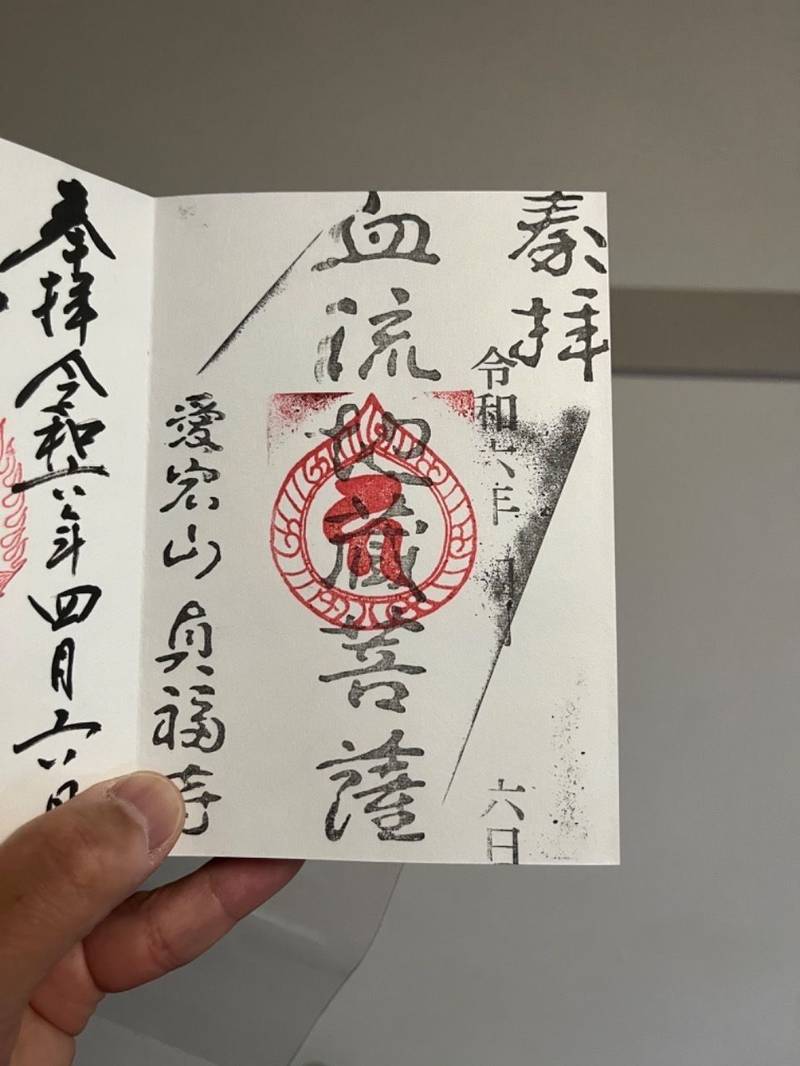 奉拝
令和六年 月
六日
血流地蔵菩薩
愛宕山 真福寺
奉拝 令和六年四月六日